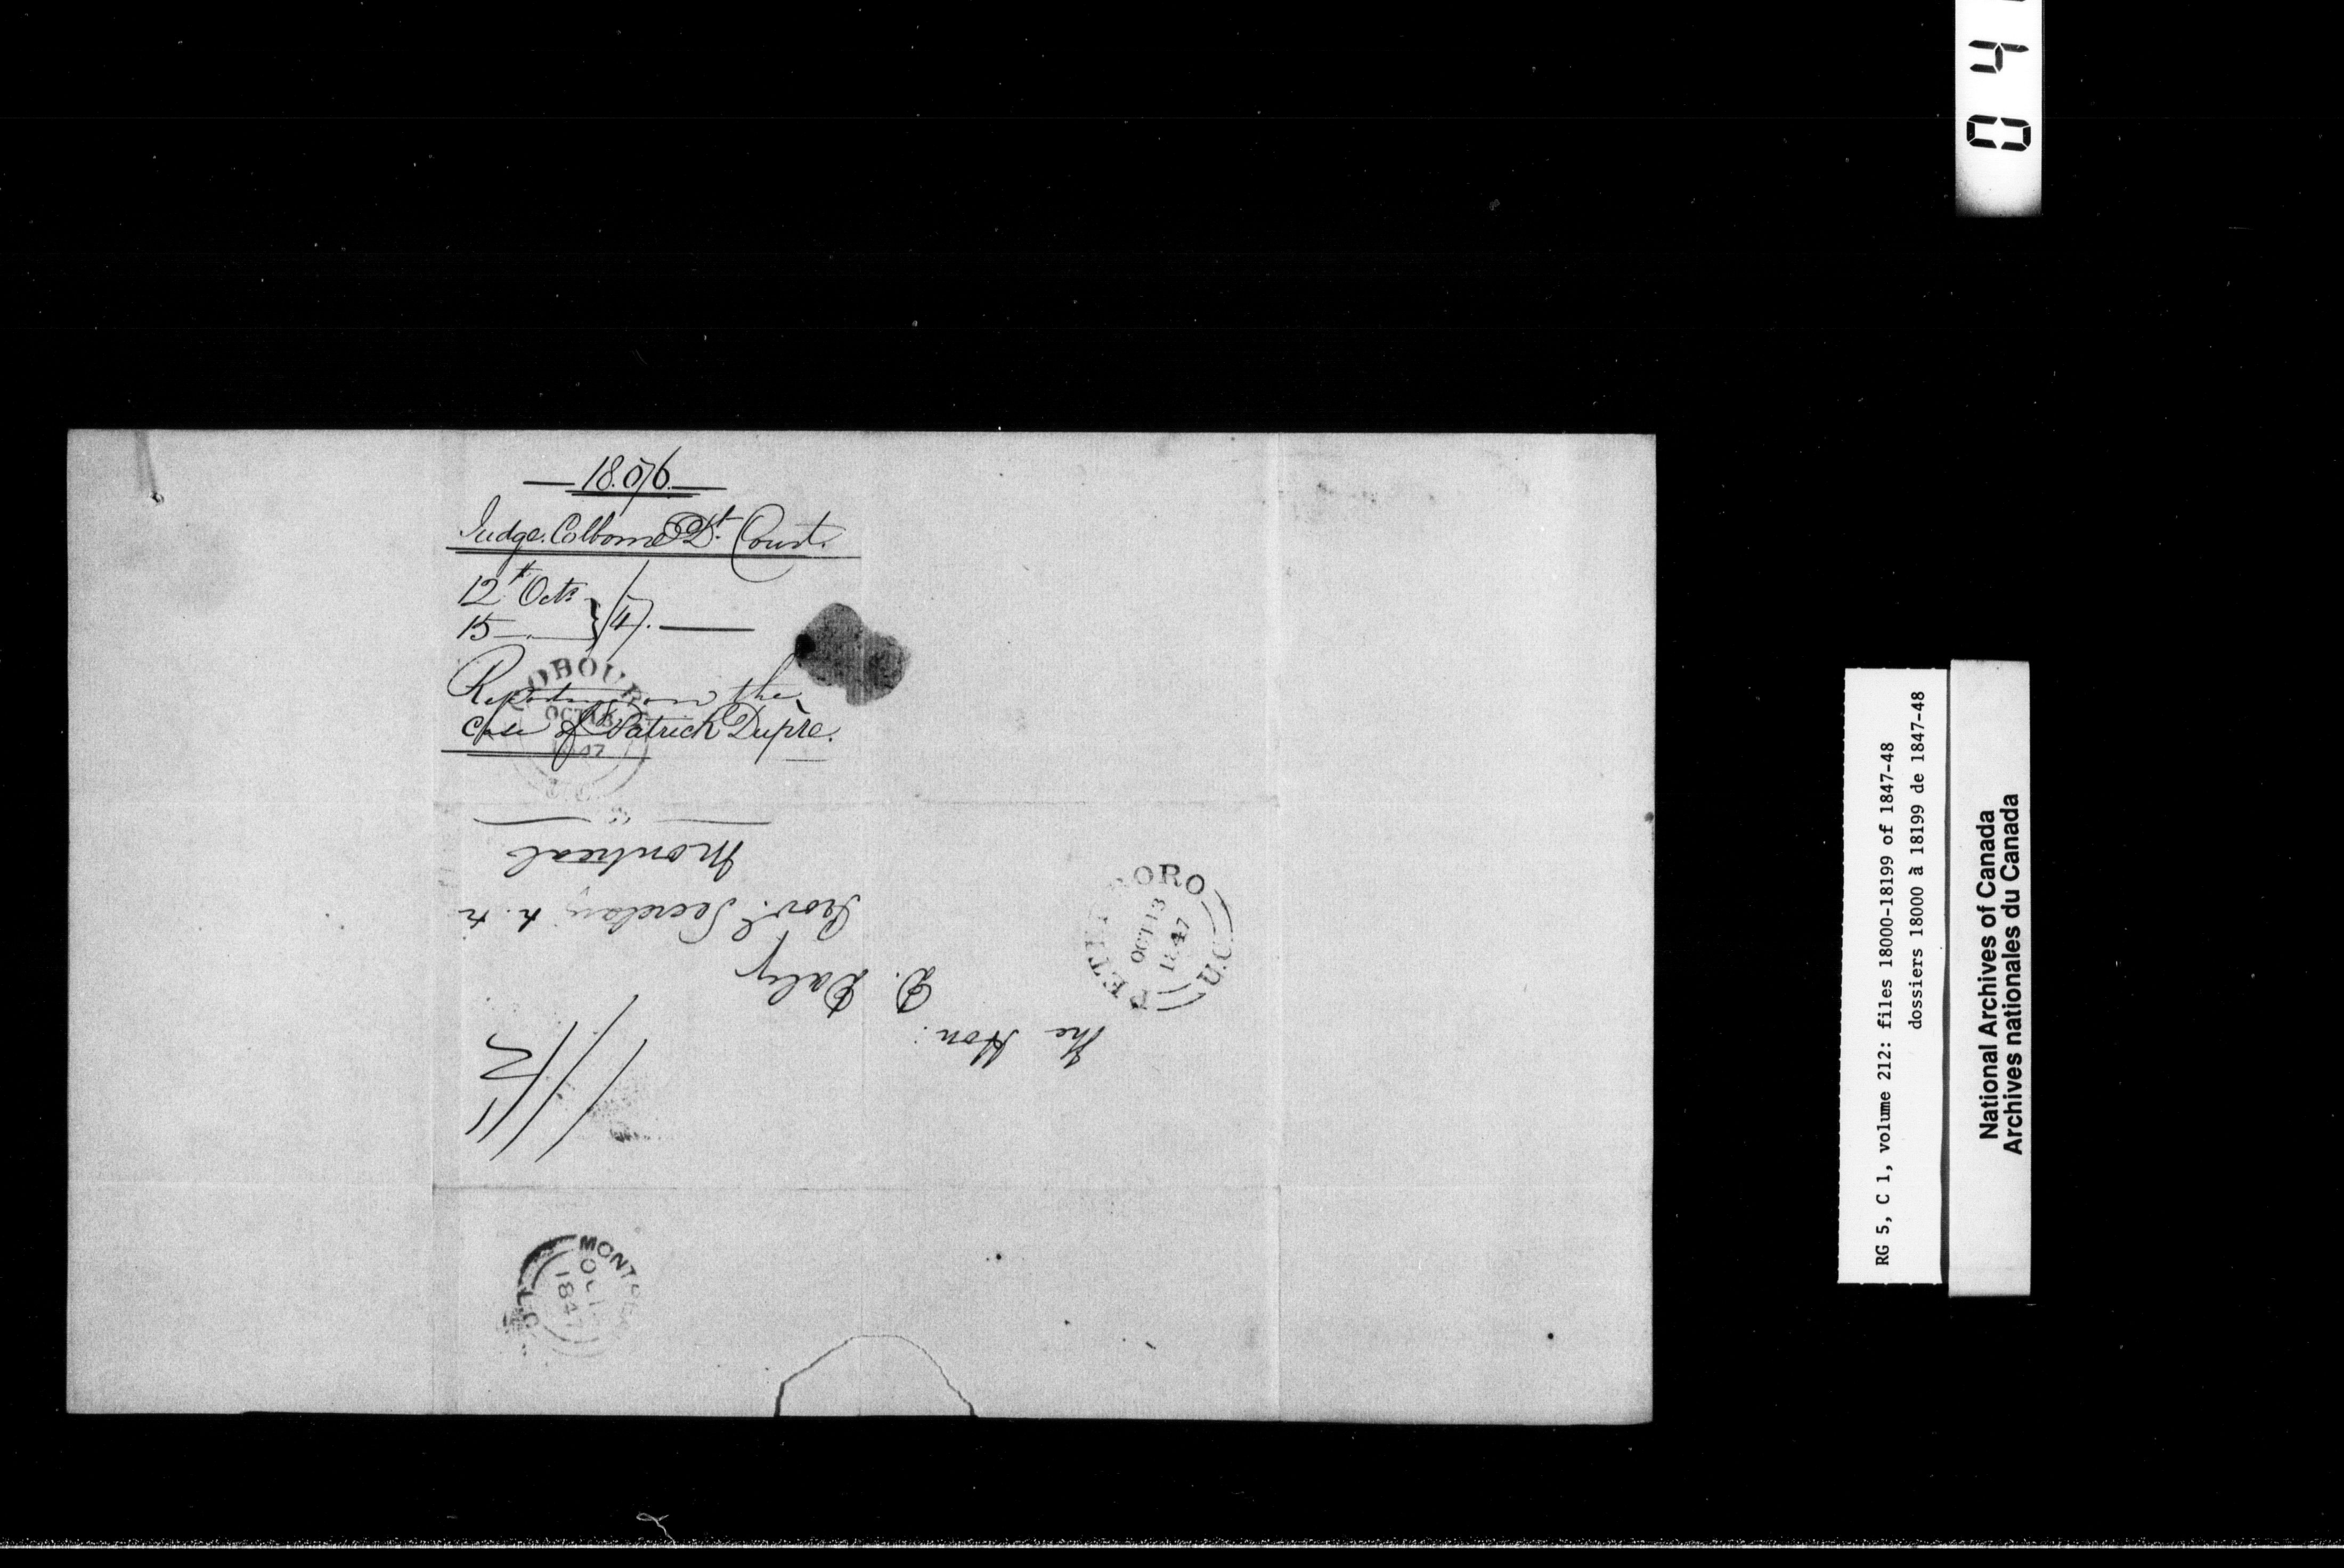 18.076
Judge. Colborne Dt. Court.
12th Octr
15 } /47.
Reporting on the
case of Patrick Dupre.
COBOUR
OCT
47
The Hon.
D. Daly
Provl. Secretary &c &c
Montreal
PETERBORO
OCT 13
1847
U.C.
MONTREAL
OC
1847
04
RG 5, C 1, volume 212: files 18000-18199 of 1847-48
dossiers 18000 à 18199 de 1847-48
National Archives of Canada
Archives nationales du Canada